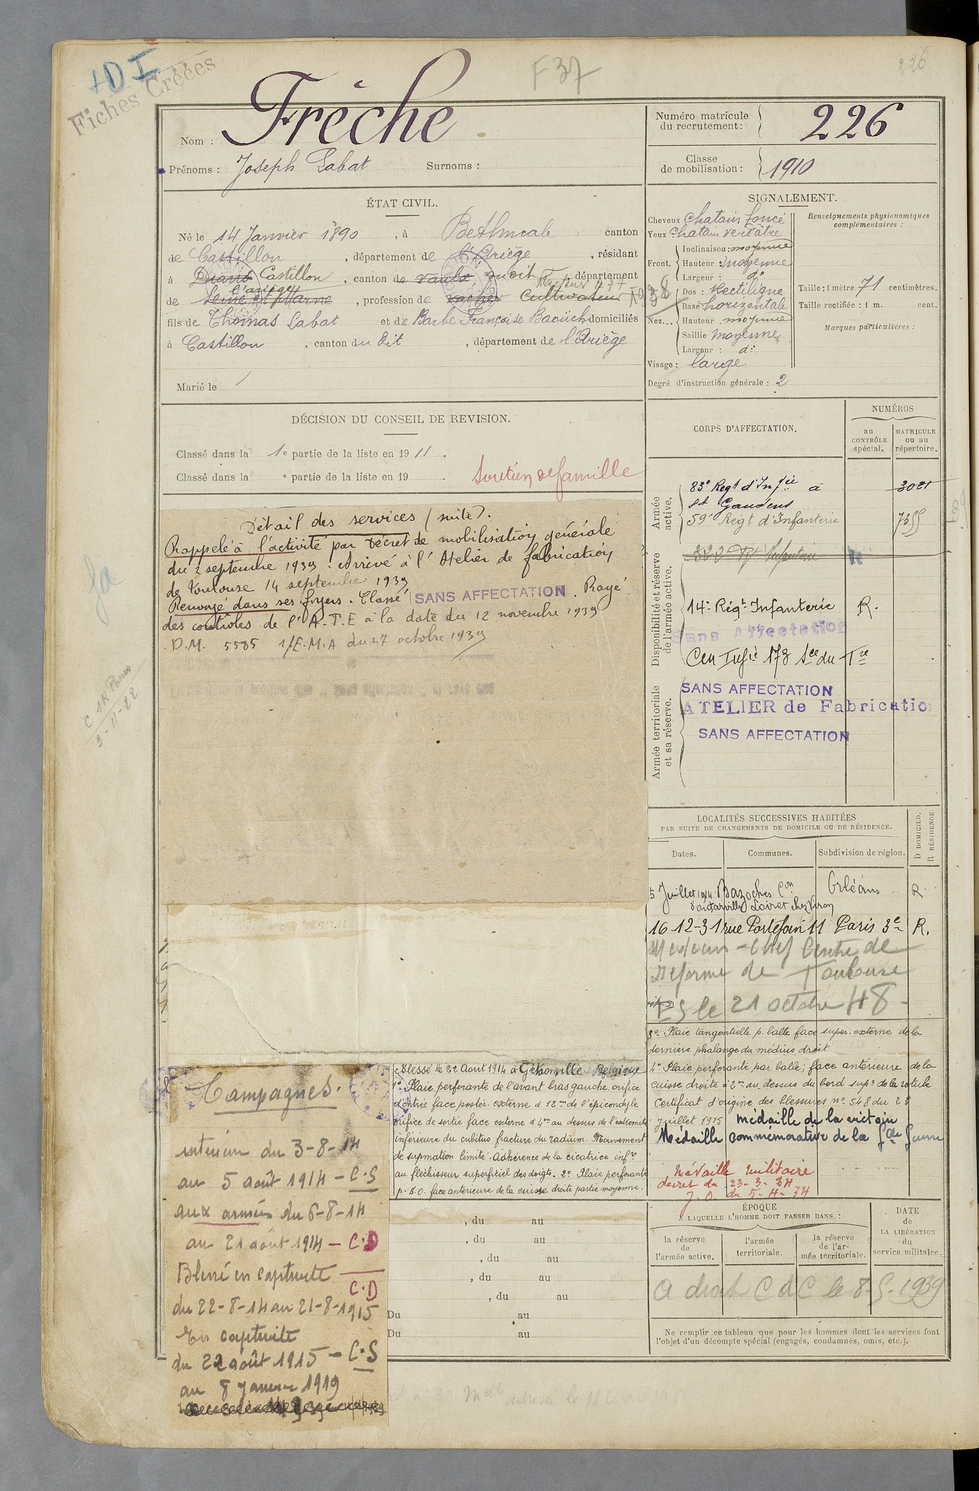 +DI
Fiches Créées
F37
226
Nom : Frêche
Numéro matricule du recrutement : 226
Prénoms : Joseph Labat Surnoms :
Classe de mobilisation : 1910
ÉTAT CIVIL.
Né le 14 Janvier 1890, à Bethmale canton
de Castillon, département de l'Ariège, résidant
à Castillon, canton de dit, département
de l'ariège, profession de Cultivateur
fils de Thomas Labat et de Barbe Françoise domiciliés
à Castillon, canton du dit, département de l'Ariège
Marié le
SIGNALEMENT.
Cheveux Chatain foncé
Yeux chatain verdâtre
Front. Inclinaison : moyenne
Hauteur : moyenne
Largeur : do
Nez... Dos : Rectiligne
Base horizontale
Hauteur moyenne
Saillie moyenne
Largeur : do
Visage : large
Degré d'instruction générale : 2
Renseignements physionomiques complémentaires :
Taille : 1 mètre 71 centimètres.
Taille rectifiée : 1 m. cent.
Marques particulières :
DÉCISION DU CONSEIL DE REVISION.
Classé dans la 1e partie de la liste en 1911.
Classé dans la e partie de la liste en 19 .
Soutien de famille
Détail des services (suite).
Rappelé à l'activité par Décret de mobilisation générale
du 2 septembre 1939. Arrivé à l'Atelier de fabrication
de Toulouse 14 septembre 1939
Renvoyé dans ses foyers. Classé SANS AFFECTATION. Rayé
des contrôles de l'A.T.E à la date du 12 novembre 1939
D.M. 5585 1/E.M.A du 27 octobre 1939
CORPS D'AFFECTATION.
NUMÉROS
au CONTRÔLE spécial.
MATRICULE ou au répertoire.
Armée active.
83e Regt d'Infie à
St Gaudens
59e Regt d'Infanterie
Disponibilité et réserve de l'armée active.
14e Régt Infanterie R.
Sans Affectation
Armée territoriale et sa réserve.
SANS AFFECTATION
ATELIER de Fabricatio
SANS AFFECTATION
LOCALITÉS SUCCESSIVES HABITÉES
PAR SUITE DE CHANGEMENTS DE DOMICILE OU DE RÉSIDENCE.
Dates. Communes. Subdivision de région. D DOMICILE. R RÉSIDENCE
5 Juillet 1914 Bazoches Con Orléans R.
d'outarville Loiret
16-12-31 rue Portefoin 11 Paris 3e R.
Médecin-Chef Centre de
Réforme de Toulouse
le 21 octobre 48
Blessé le 22 Aout 1914 à Belgique
1o Plaie perforante de l'avant bras gauche orifice
d'entrée face poster. externe à 12cm de l'épicondyle
orifice de sortie face externe à 4cm au dessus de l'extrémité
inférieure du cubitus fracture du radium. Mouvement
de supination limité. Adhérence de la cicatrice infre
au fléchisseur superficiel des doigts. 2o Plaie perforante
p. b. o. face antérieure de la cuisse droite partie moyenne.
3o Plaie tangentielle p. balle face super. externe de la
dernière phalange du médius droit
4o Plaie perforante par balle, face antérieure de la
cuisse droite à 2cm au dessus du bord supr de la rotule
Certificat d'origine des blessures no 548 du 28
Juillet 1915 Médaille de la victoire
Médaille Commémorative de la Gde Guerre
Médaille Militaire
décret du 23-3-34
J.O. du 5-4-34
Campagnes.
intérieur du 3-8-14
au 5 août 1914 - C.S
aux armées du 6-8-14
au 21 août 1914 - C.D
Blessé en captivité
C.D
du 22-8-14 au 21-8-1915
En captivité
du 22 août 1915 - C.S
au 8 janvier 1919
, du au
, du au
, du au
, du au
, du au
Du au
Du au
ÉPOQUE
A LAQUELLE L'HOMME DOIT PASSER DANS :
la réserve de l'armée active.
l'armée territoriale.
la réserve de l'armée territoriale.
DATE de LA LIBÉRATION du service militaire.
A droit C d C le 8.5.1939
Ne remplir ce tableau que pour les hommes dont les services font
l'objet d'un décompte spécial (engagés, condamnés, omis, etc.).